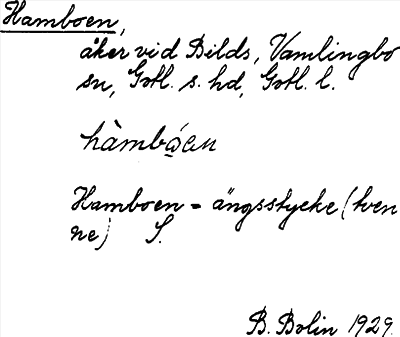 Hamboen,
åker vid Bilds, Vamlingbo
sn, Gotl. s. hd, Gotl. l.
hàmbó̲en
Hamboen = ängsstycke (tven
ne) S.
B. Bolin 1929.